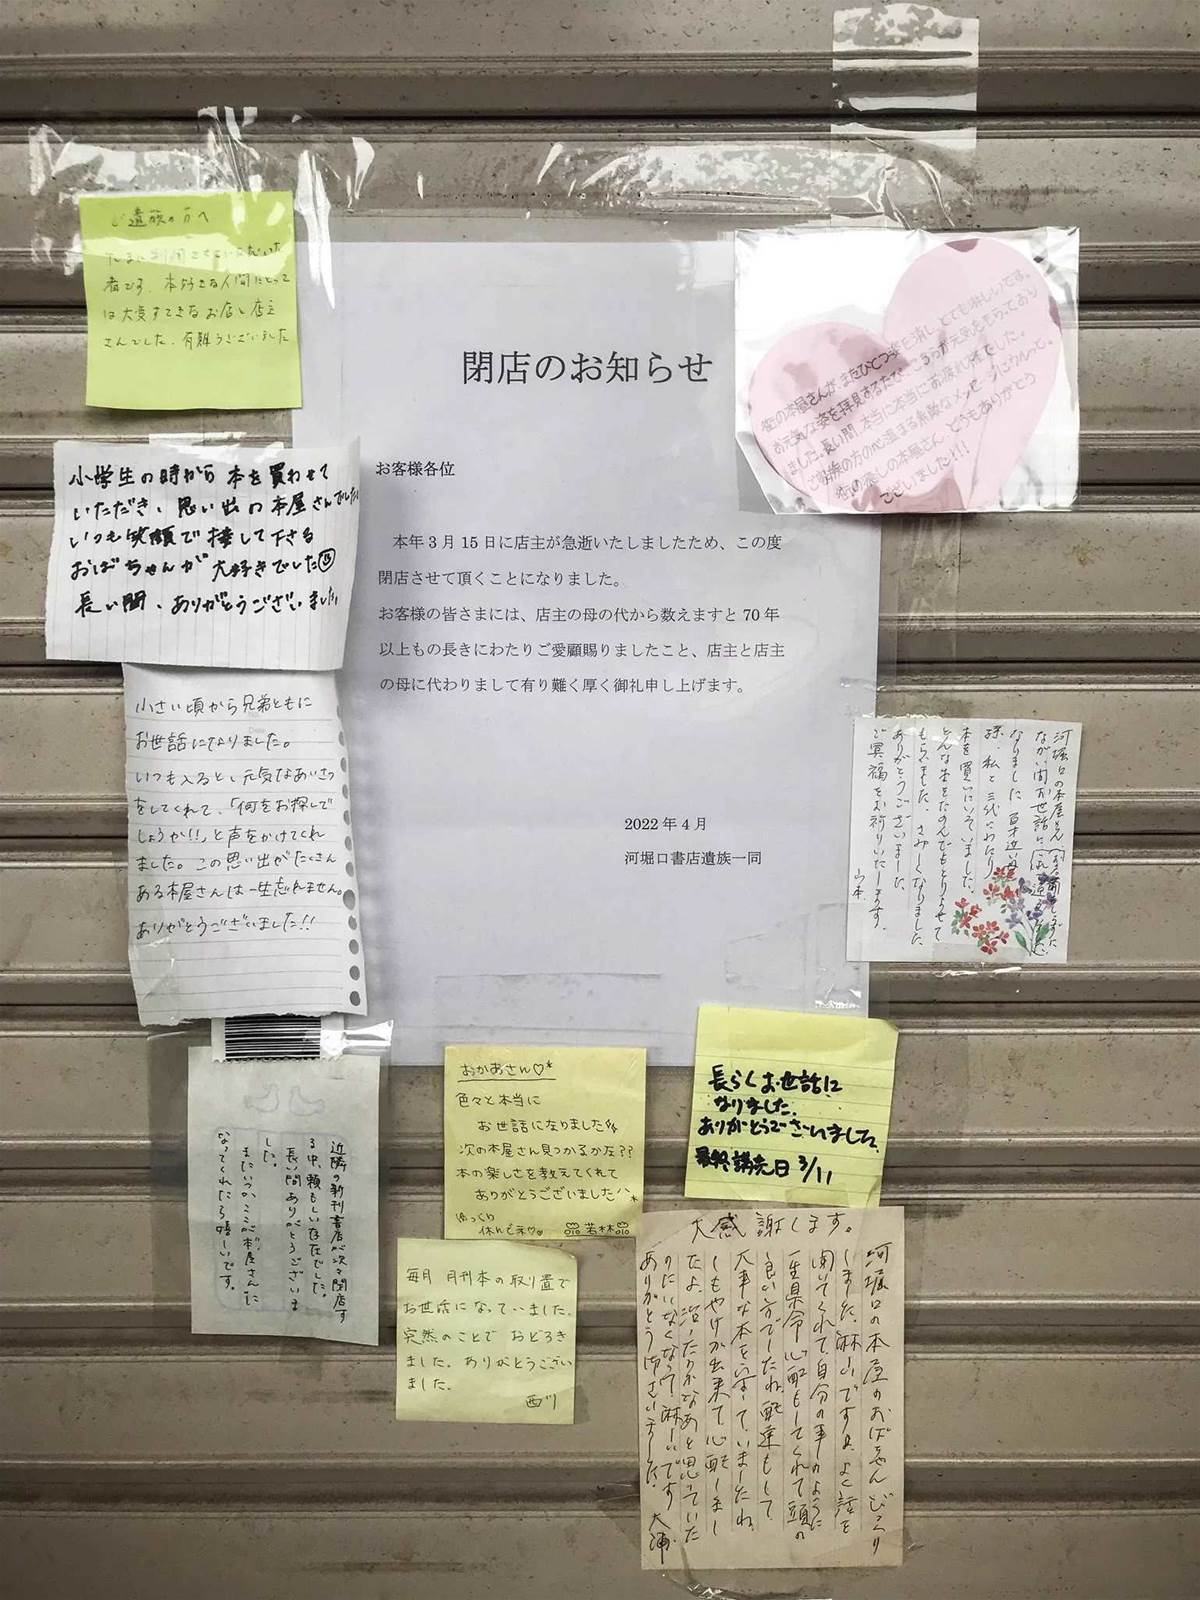 閉店のお知らせ
お客様各位
本年3月15日に店主が急逝いたしましたため、この度
閉店させて頂くことになりました。
お客様の皆さまには、店主の母の代から数えますと70年
以上もの長きにわたりご愛顧賜りましたこと、店主と店主
の母に代わりまして有り難く厚く御礼申し上げます。
2022年4月
河堀口書店遺族一同
ご遺族の方へ
たまに利用させていただいた
者です。本好きな人間にとって
は大変すてきなお店と店主
さんでした。有難うございました
小学生の時から本を買わせて
いただき、思い出の本屋さんでした
いつも笑顔で接して下さる
おばちゃんが大好きでした
長い間、ありがとうございました
小さい頃から兄弟ともに
お世話になりました。
いつも入ると、元気なあいさつ
をしてくれて、「何をお探しで
しょうか!!」と声をかけてくれ
ました。この思い出がたくさん
ある本屋さんは一生忘れません。
ありがとうございました!!
近隣の新刊書店が次々閉店す
る中、頼もしい存在でした。
長い間ありがとうございま
した。
またいつかここが本屋さんに
なってくれたら嬉しいです。
街の本屋さんが、またひとつ姿を消しとても淋しいです。
お元気な姿を拝見するたびにこちらが元気をもらっており
ました。長い間、本当に本当にお疲れ様でした。
ご遺族の方の心温まる素敵なメッセージにウルっと。
街の癒しの本屋さん、どうもありがとう
ございました!!!
河堀口の本屋さん
ながい間お世話に
なりました
孫、私と三代にわたり
本を買いにいっていました。
どんな本をたのんでもとりよせて
もらいました。さみしくなりました
ありがとうございました
ご冥福をお祈りいたします。
山本
おかあさん♡*
色々と本当に
お世話になりました
次の本屋さん見つかるかな??
本の楽しさを教えてくれて
ありがとうございました^^*
ゆっくり
休んでネ♡。
若林
長らくお世話に
なりました。
ありがとうございました。
最終購読日 3/11
毎月 月刊本の取り置で
お世話になっていました。
突然のことで おどろき
ました。ありがとうござい
ました。
西川
大感謝します。
河堀口の本屋のおばちゃんびっくり
しました。淋しいですネ。よく話を
聞いてくれて、自分の事のように
一生県命心配もしてくれて頭の
良い方でしたね。配達もして
大事な本をいましたね。
しもやけが出来て心配しまし
たよ。治ったかなあと思っていた
のにいなくなって、淋しいです
ありがとう御ざいました。
大浦